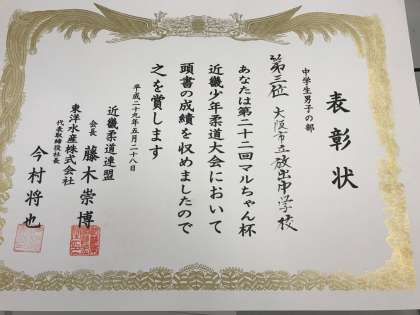 表彰状
中学生男子の部
第三位 大阪市立放出中学校
あなたは第二十二回マルちゃん杯
近畿少年柔道大会において
頭書の成績を収めましたので
之を賞します
平成二十九年五月二十八日
近畿柔道連盟
会長 藤木崇博
東洋水産株式会社
代表取締役社長 今村将也